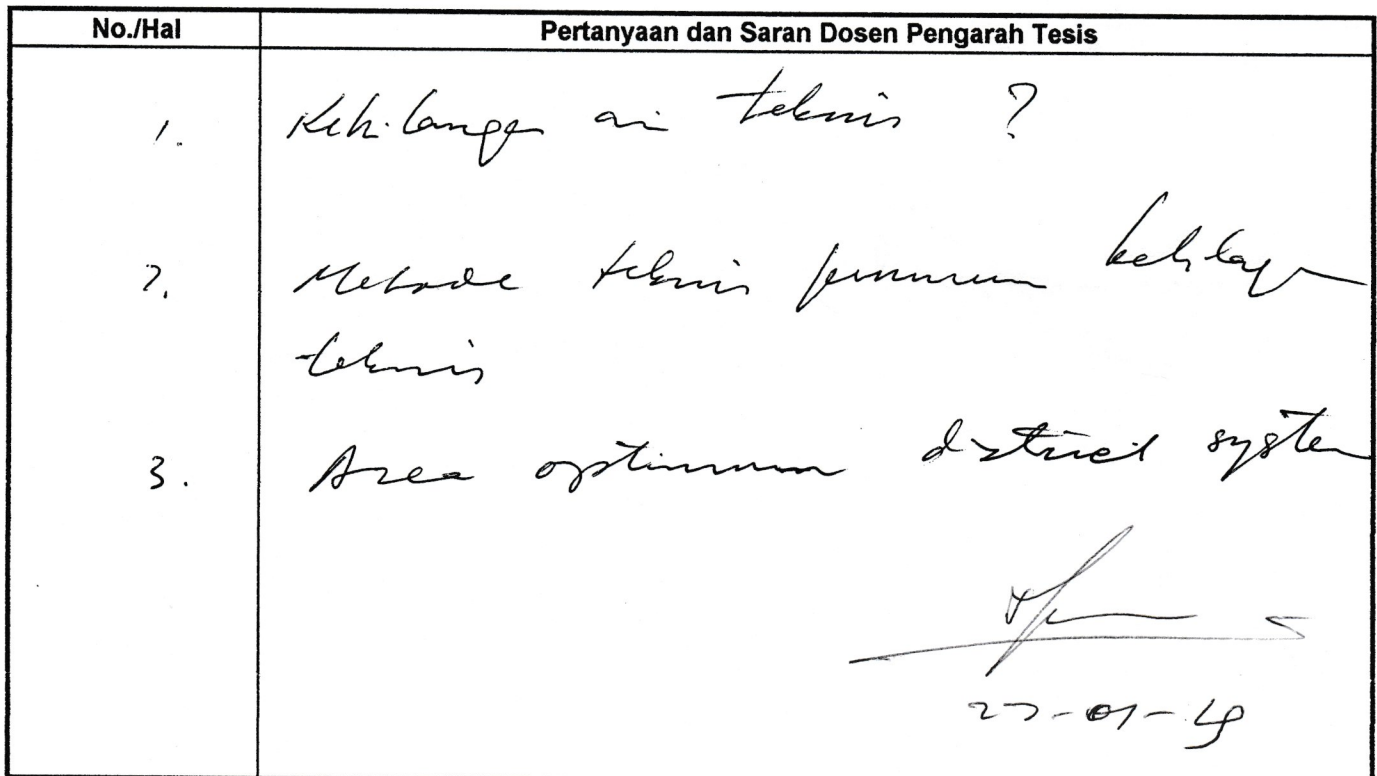 No./Hal Pertanyaan dan Saran Dosen Pengarah Tesis
1. Kehilangan air teknis ?
2. Metode teknis penurunan kehilangan
teknis
3. Area optimum district system